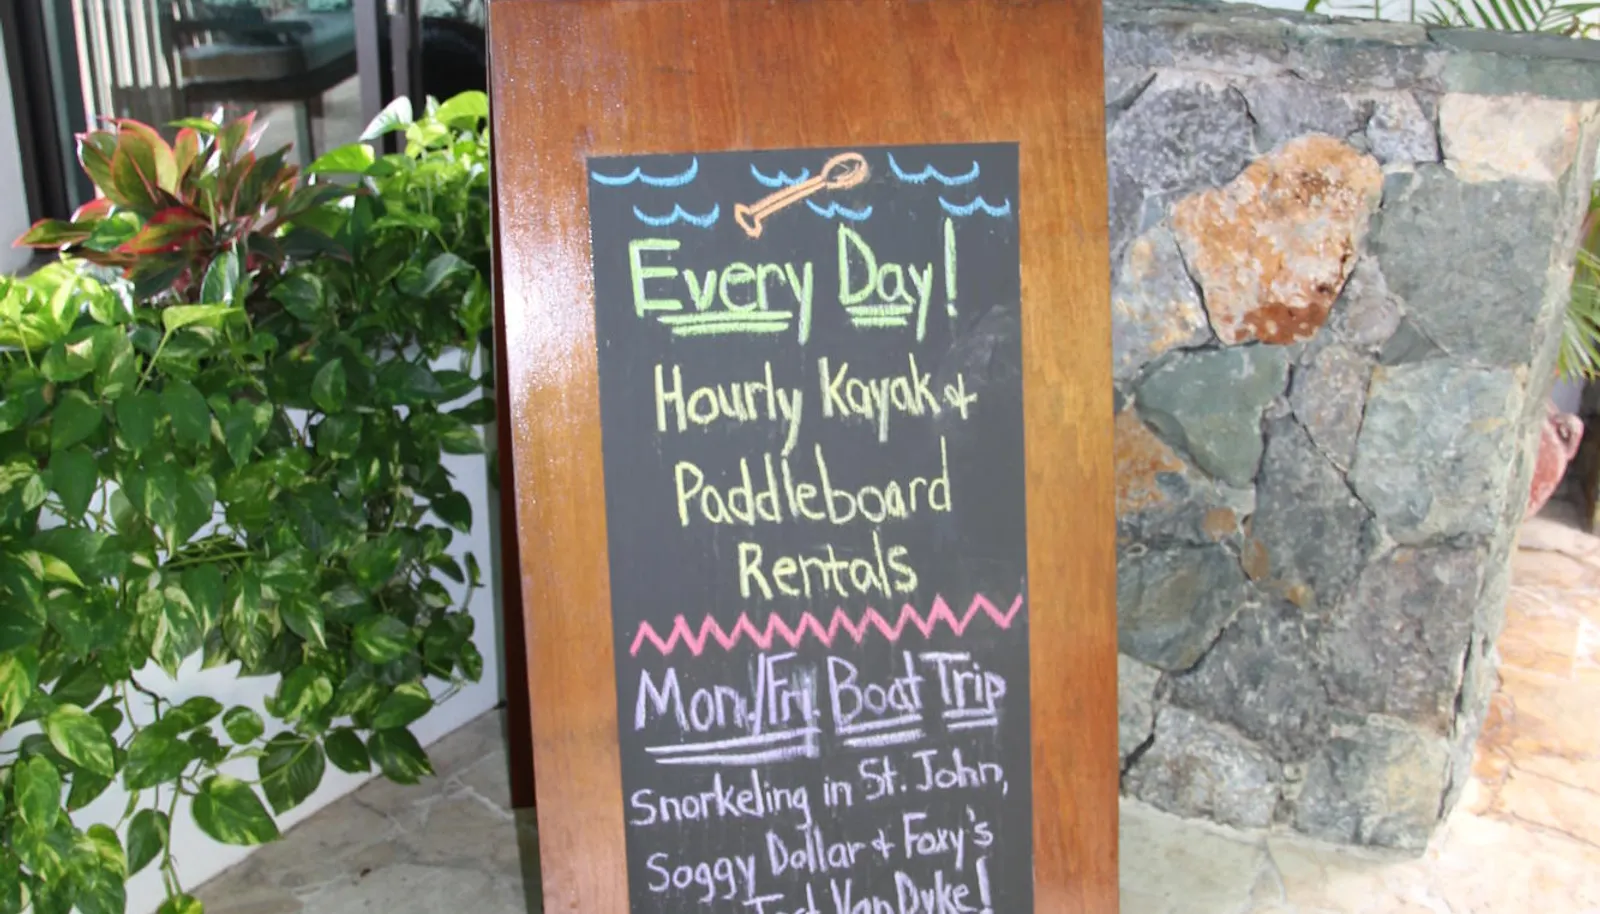 Every Day!
Hourly Kayak &
Paddleboard
Rentals
Mon./Fri. Boat Trip
Snorkeling in St. John,
Soggy Dollar & Foxy's
Jost Van Dyke!